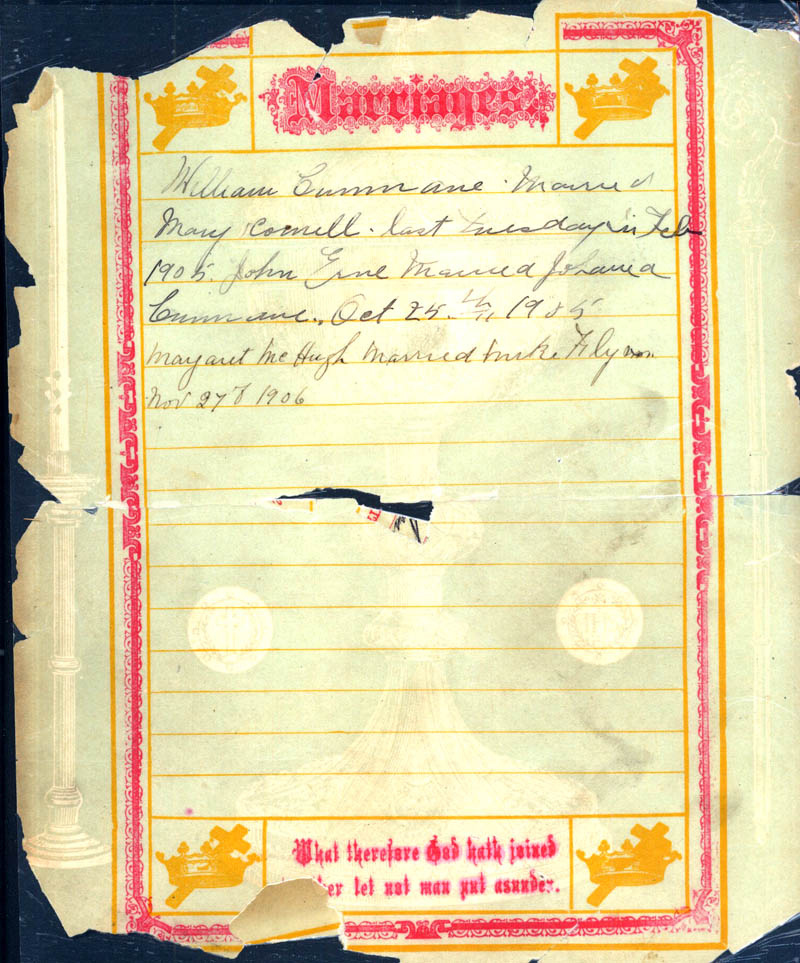 Marriages.
William Cunnane. Married
Mary Cornell. last tuesday in Feb
1905. John Married Johanna
Cunnane., Oct 25. 1905
Margaret McHugh Married
Nov 27 1906
What therefore God hath joined
let not man put asunder.